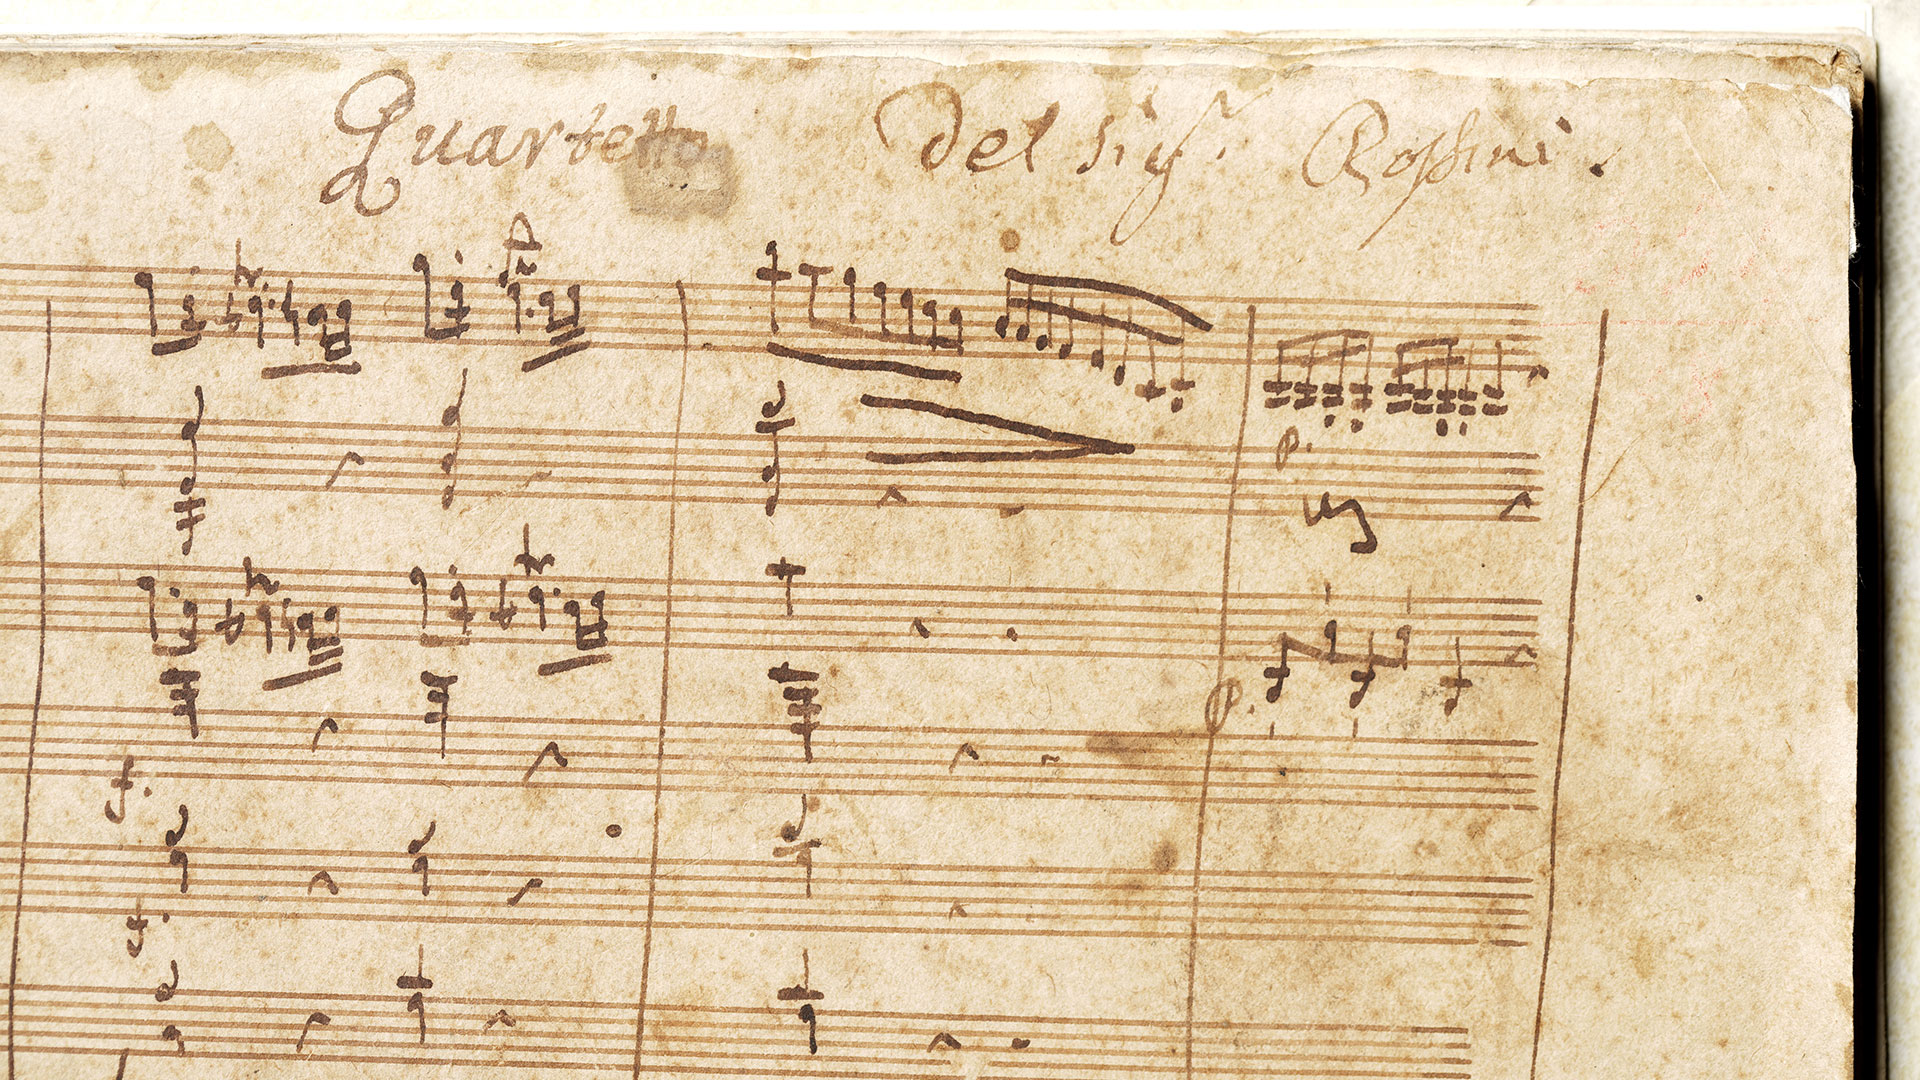 Quartetto Del Sigr. Rossini.
p.
p.
f.
f.